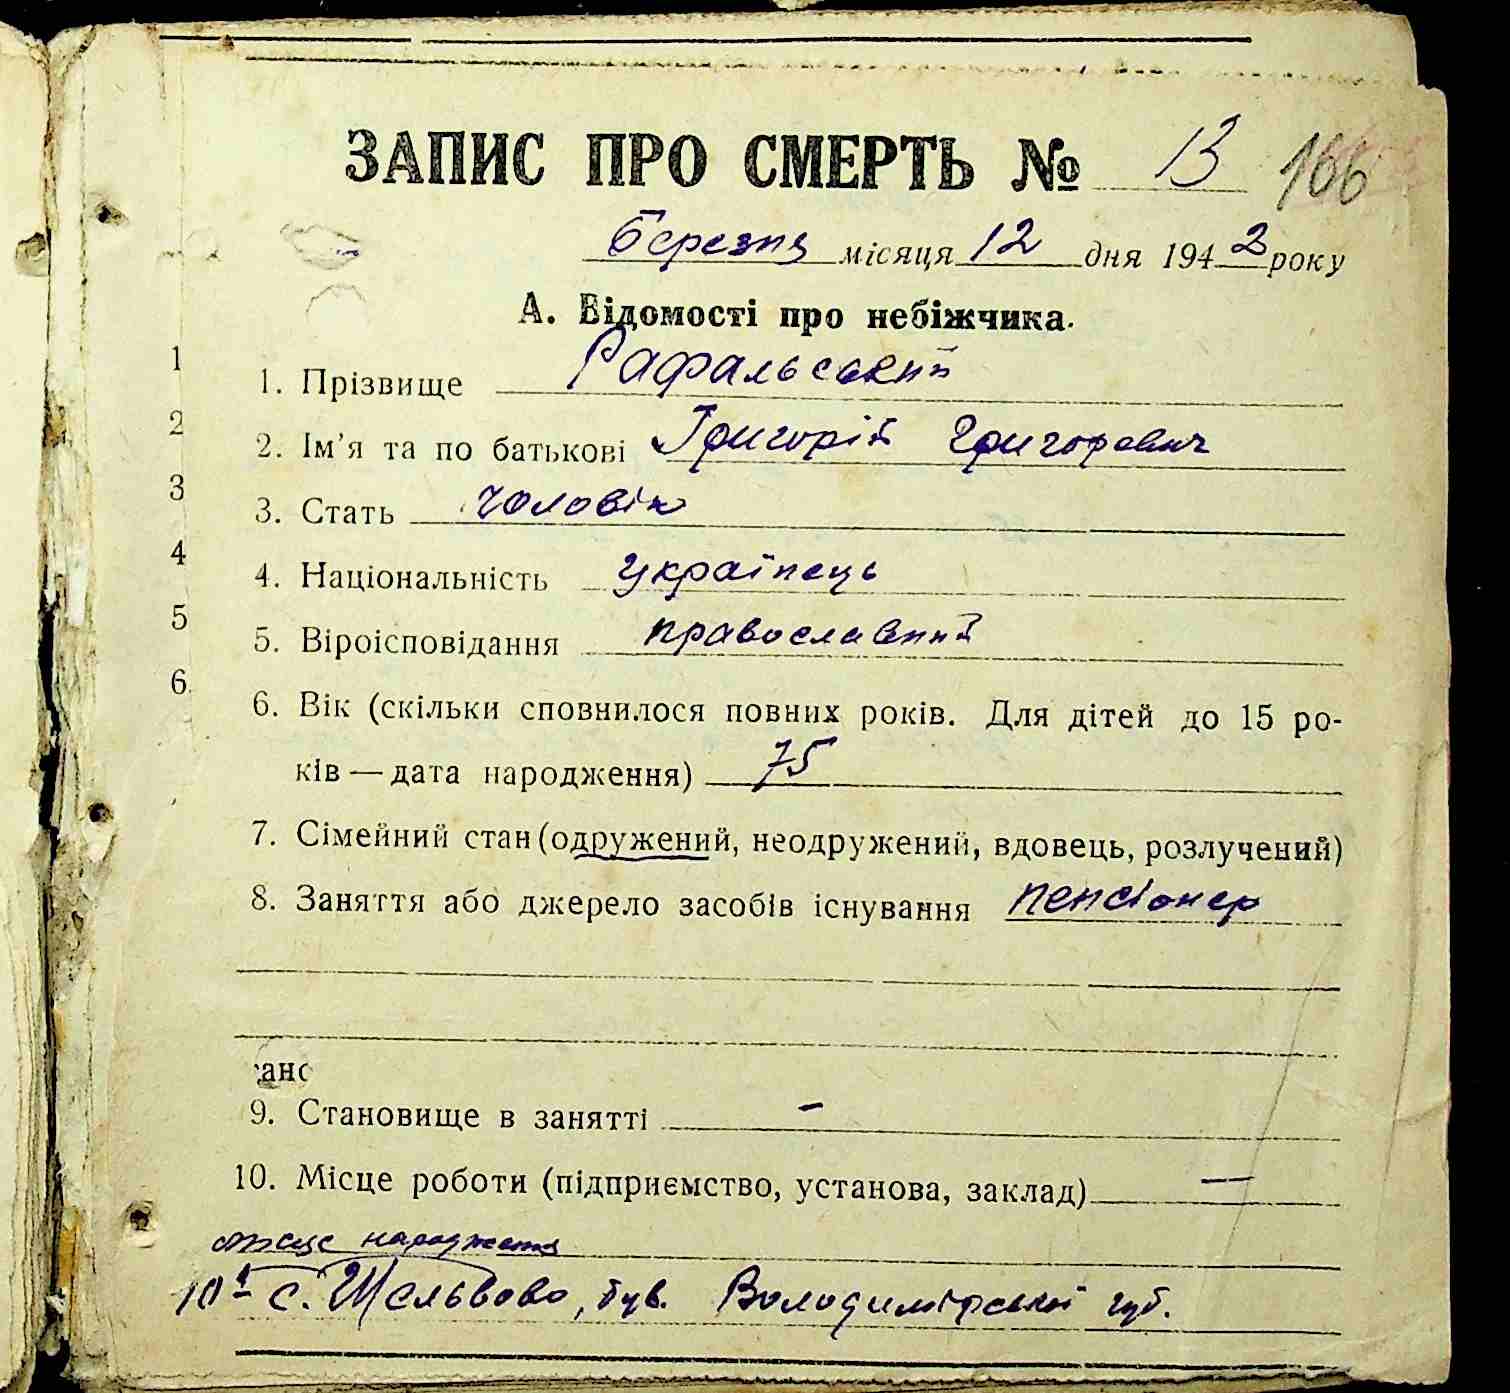 ЗАПИС ПРО СМЕРТЬ № 13 166
березня місяця 12 дня 1942 року
А. Відомості про небіжчика.
1
1. Прізвище Рафальський
2
2. Ім'я та по батькові Григорій Григоревич
3
3. Стать чоловік
4
4. Національність українець
5
5. Віроісповідання православний
6.
6. Вік (скільки сповнилося повних років. Для дітей до 15 ро-
ків — дата народження) 75
7. Сімейний стан (одружений, неодружений, вдовець, розлучений)
8. Заняття або джерело засобів існування пенсіонер
ано
9. Становище в занятті -
10. Місце роботи (підприємство, установа, заклад) —
місце народження
10¹ с. Шельвово, був. Володимірської губ.